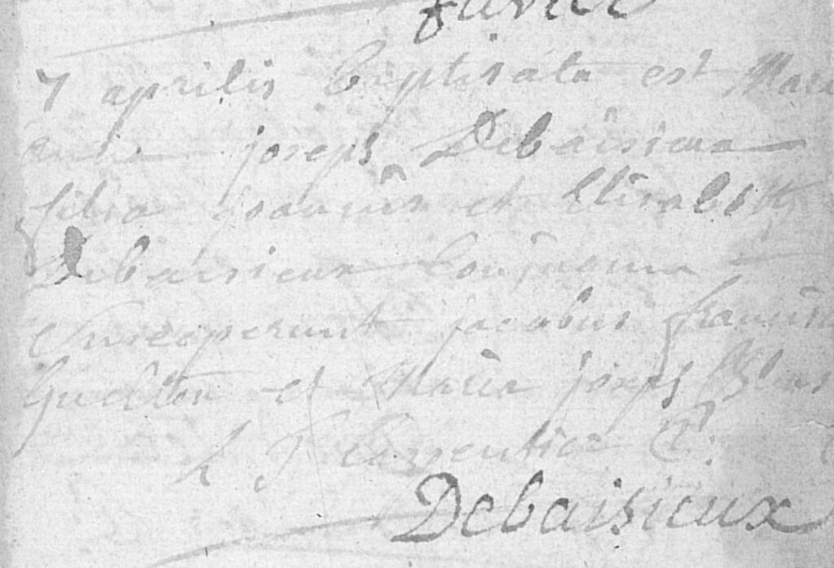 7 aprilis baptisata est Mari
anna joseph Debaisieux
filia joannis et Elisabeth
Debaisieux Conjugum
Susceperunt jacobus francis
et Maria joseph
Debaisieux